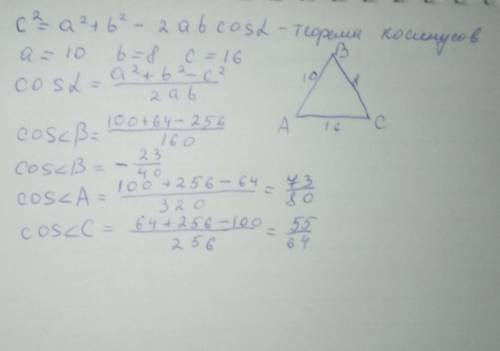 c² = a² + b² - 2ab cosα - теорема косинусов
a = 10 b = 8 c = 16
cosα = \frac{a² + b² - c²}{2ab}
B
10 8
A 16 C
cos<B = \frac{100 + 64 - 256}{160}
cos<B = - \frac{23}{40}
cos<A = \frac{100 + 256 - 64}{320} = \frac{73}{80}
cos<C = \frac{64 + 256 - 100}{256} = \frac{55}{64}